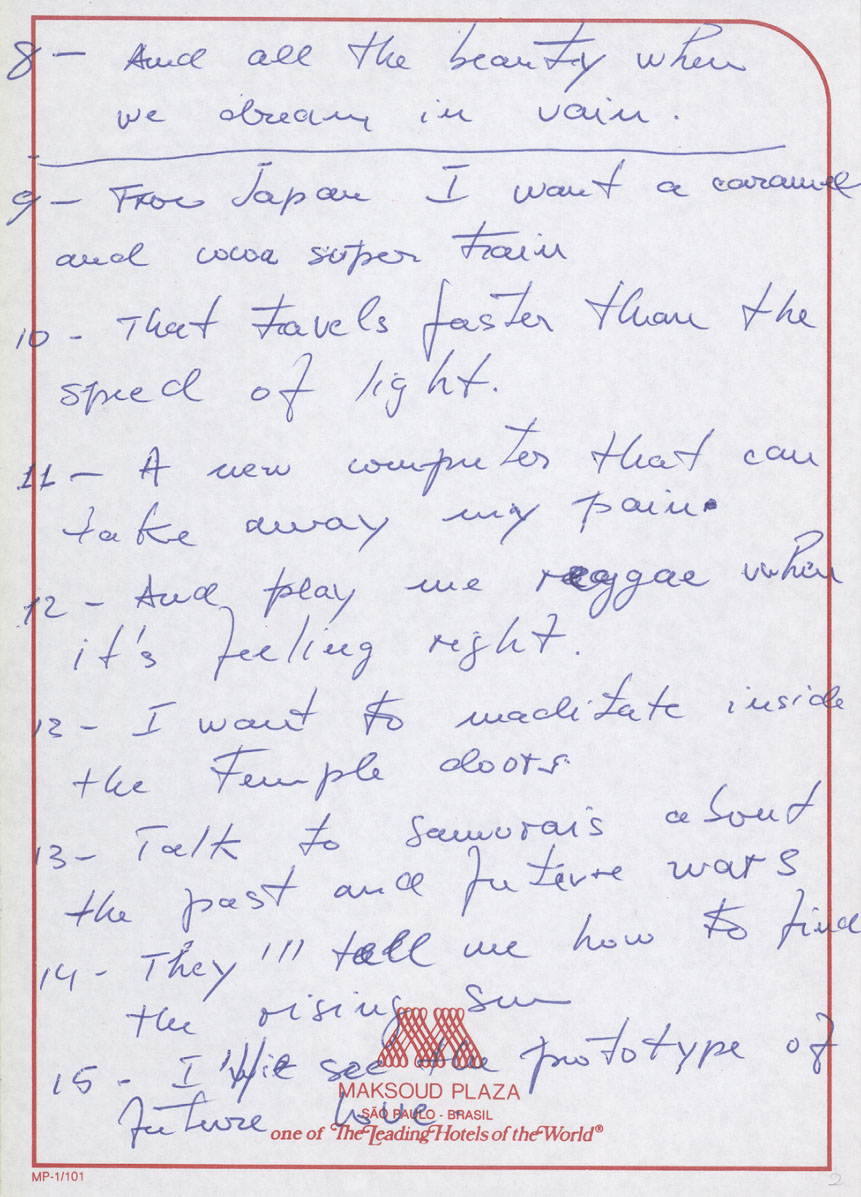 8 - And all the beauty when
we dream in vain.
9 - From Japan I want a caramel
and cocoa super train
10 - That travels faster than the
speed of light.
11 - A new computer that can
take away my pain.
12 - And play me reggae when
it's feeling right.
12 - I want to maditate inside
the Temple doors
13 - Talk to Samurais about
the past and future wars
14 - They'll tell me how to find
the rising sun
15 - I'll see the prototype of
future love.
MAKSOUD PLAZA
SÃO PAULO - BRASIL
one of The Leading Hotels of the World®
MP-1/101
2